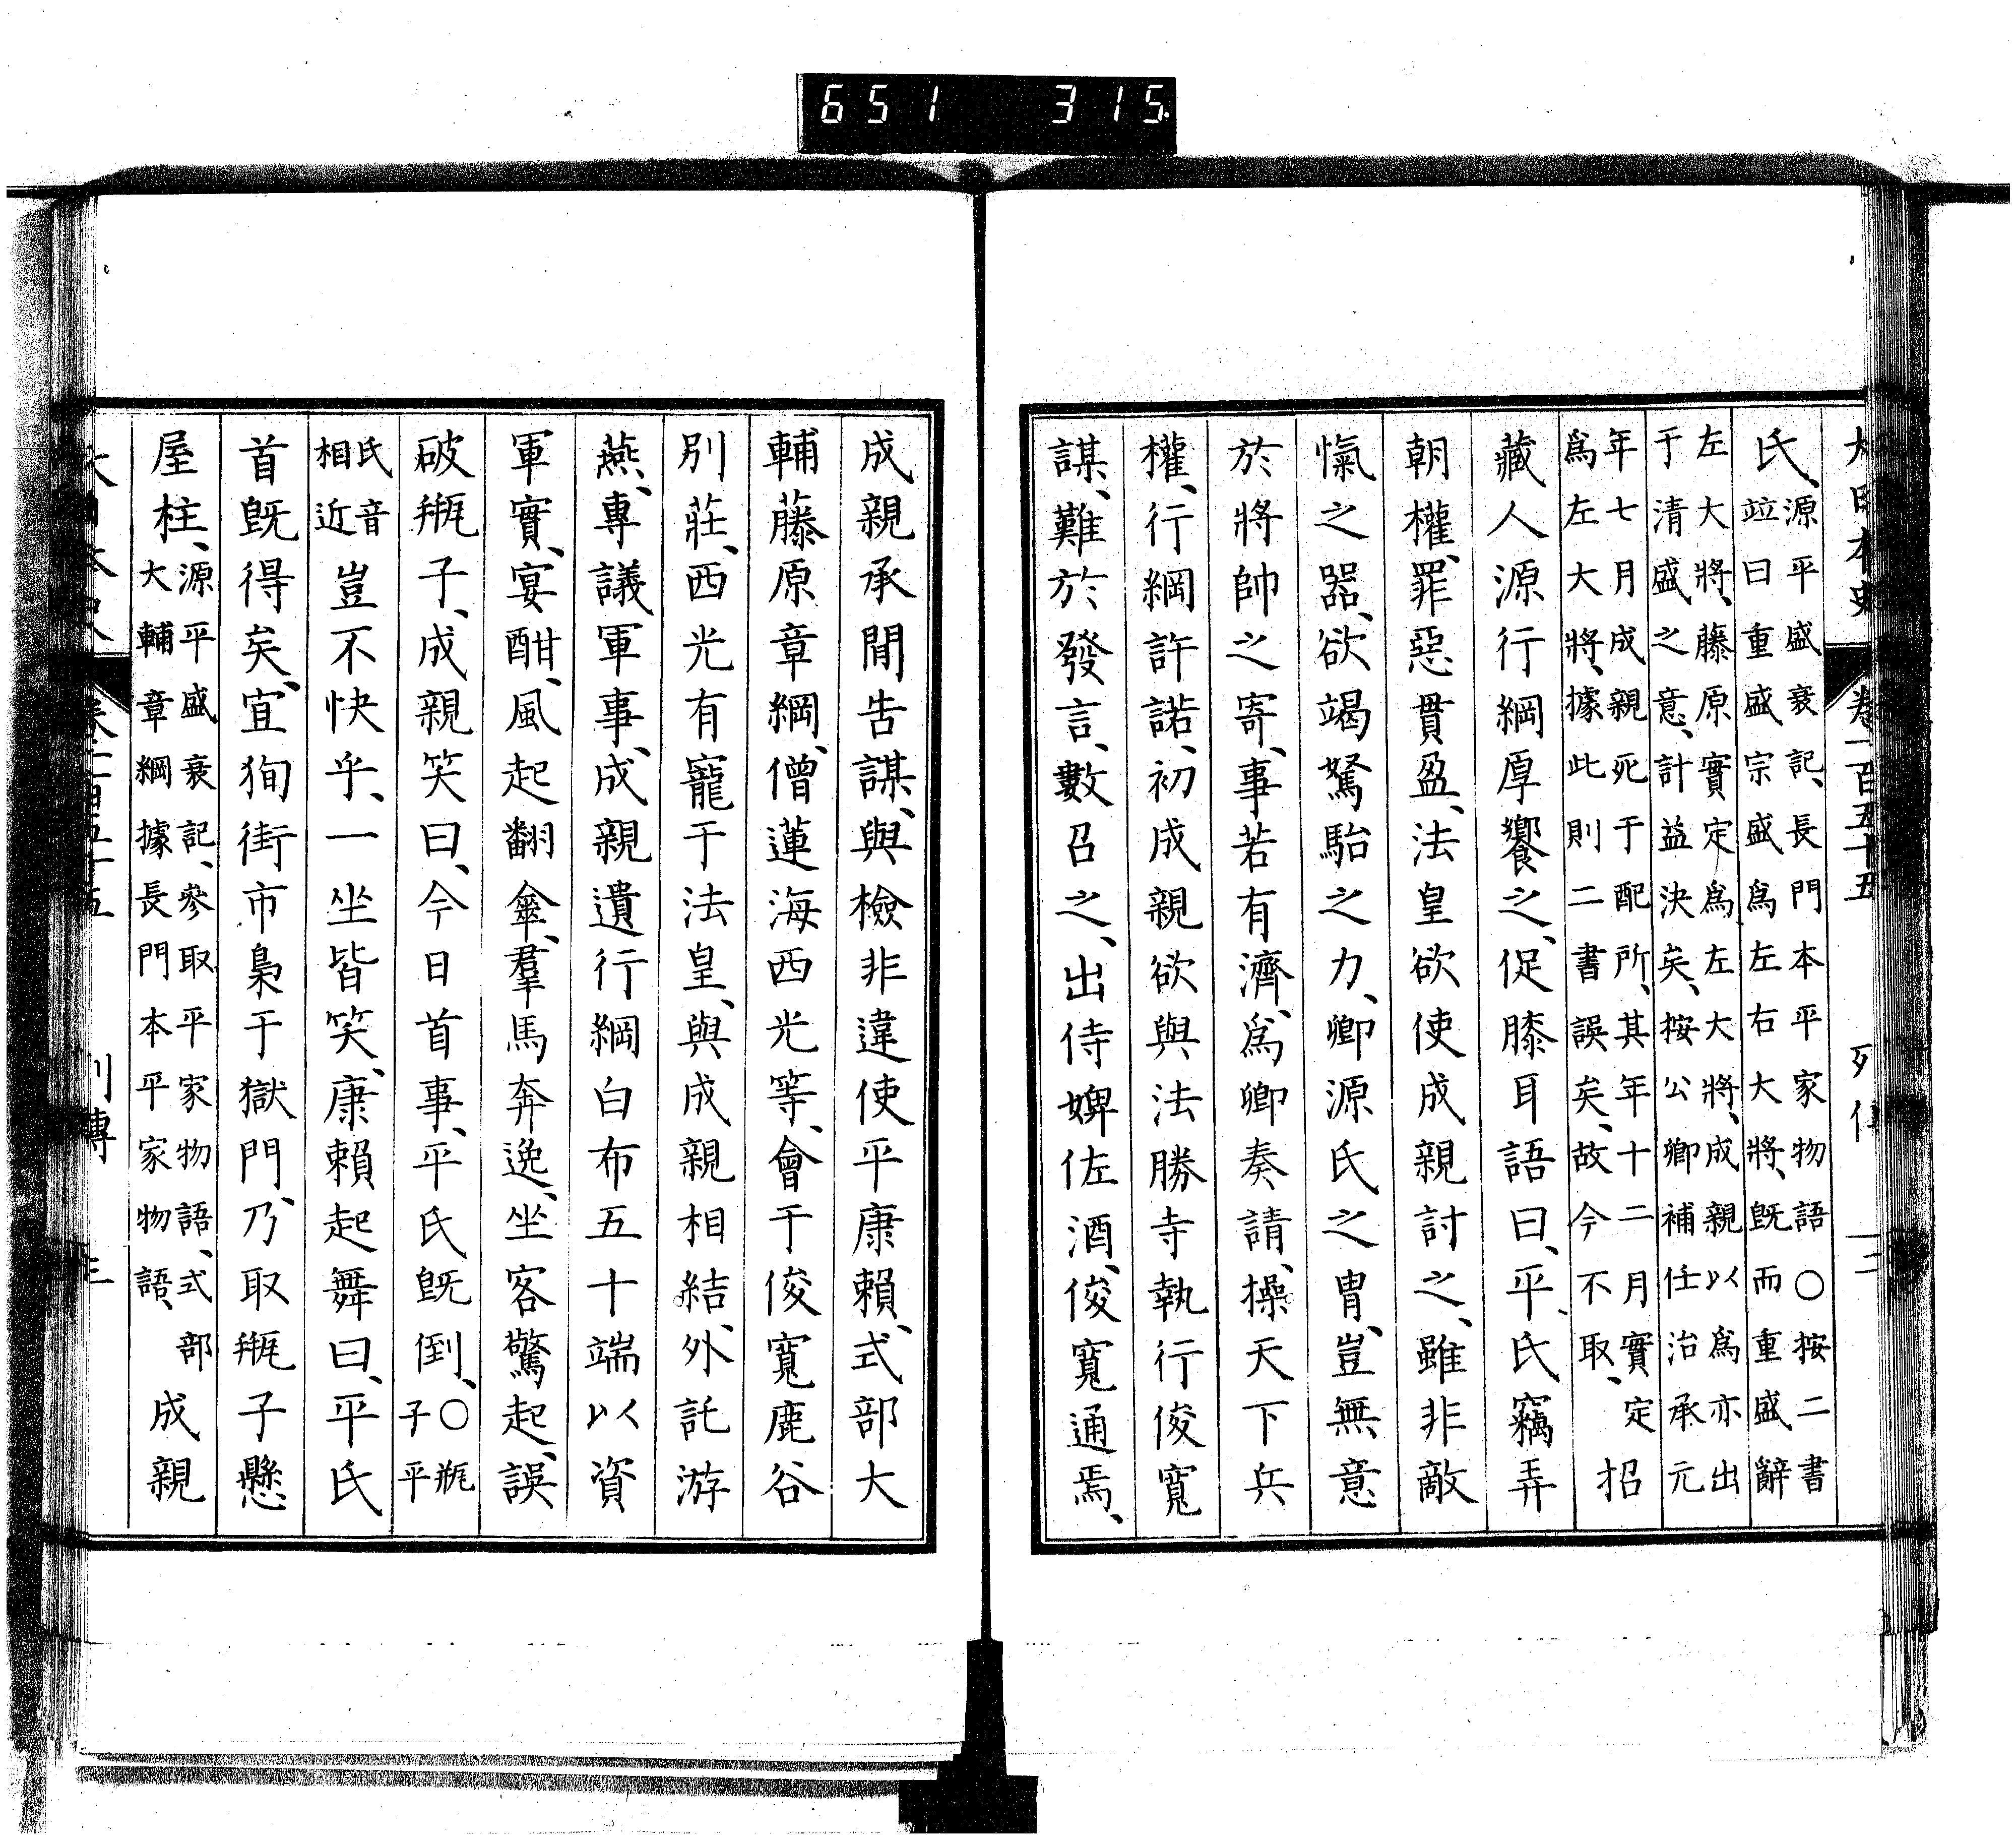 651 315
大日本史 卷一百五十五 列傳 二
氏、源平盛衰記、長門本平家物語○按二書竝曰重盛宗盛爲左右大將、既而重盛辭
左大將、藤原實定爲左大將、成親以爲亦出于清盛之意、計益決矣、按公卿補任治承元
年七月成親死于配所、其年十二月實定爲左大將、據此則二書誤矣、故今不取、招
藏人源行綱厚饗之、促膝耳語曰、平氏竊弄
朝權、罪惡貫盈、法皇欲使成親討之、雖非敵
愾之器、欲竭駑駘之力、卿源氏之冑、豈無意
於將帥之寄、事若有濟、爲卿奏請、操天下兵
權、行綱許諾、初成親欲與法勝寺執行俊寬
謀、難於發言、數召之、出侍婢佐酒、俊寬通焉、
成親承間告謀、與檢非違使平康賴、式部大
輔藤原章綱、僧蓮海西光等、會于俊寬鹿谷
別莊、西光有寵于法皇、與成親相結、外託游
燕、專議軍事、成親遺行綱白布五十端以資
軍實、宴酣、風起翻傘、羣馬奔逸、坐客驚起、誤
破瓶子、成親笑曰、今日首事、平氏既倒、○瓶子平
氏音相近豈不快乎、一坐皆笑、康賴起舞曰、平氏
首既得矣、宜狥街市梟于獄門、乃取瓶子懸
屋柱、源平盛衰記、參取平家物語、式部大輔章綱據長門本平家物語、成親
大日本史 卷一百五十五 列傳 三